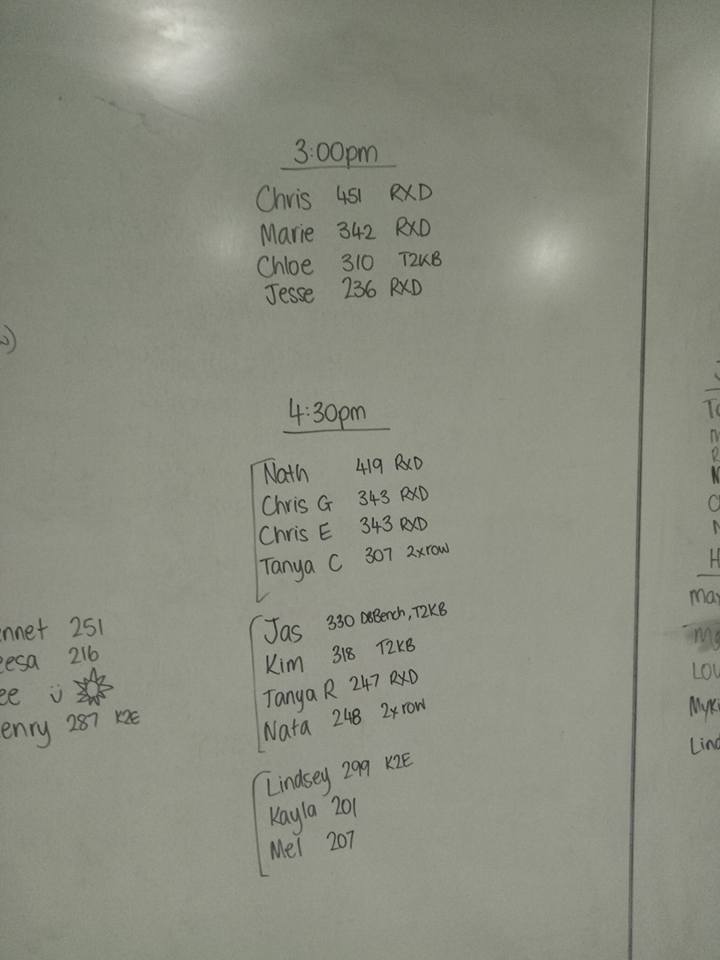 3:00pm
Chris 451 RXD
Marie 342 RXD
Chloe 310 T2KB
Jesse 236 RXD
4:30pm
Nath 419 RXD
Chris G 343 RXD
Chris E 343 RXD
Tanya C 307 2xrow
Jas 330 DBBench, T2KB
Kim 318 T2KB
Tanya R 247 RXD
Nata 248 2xrow
Lindsey 299 K2E
Kayla 201
Mel 207
nnet 251
eesa 216
ee
enry 287 K2E
LOU
Myki
Lind